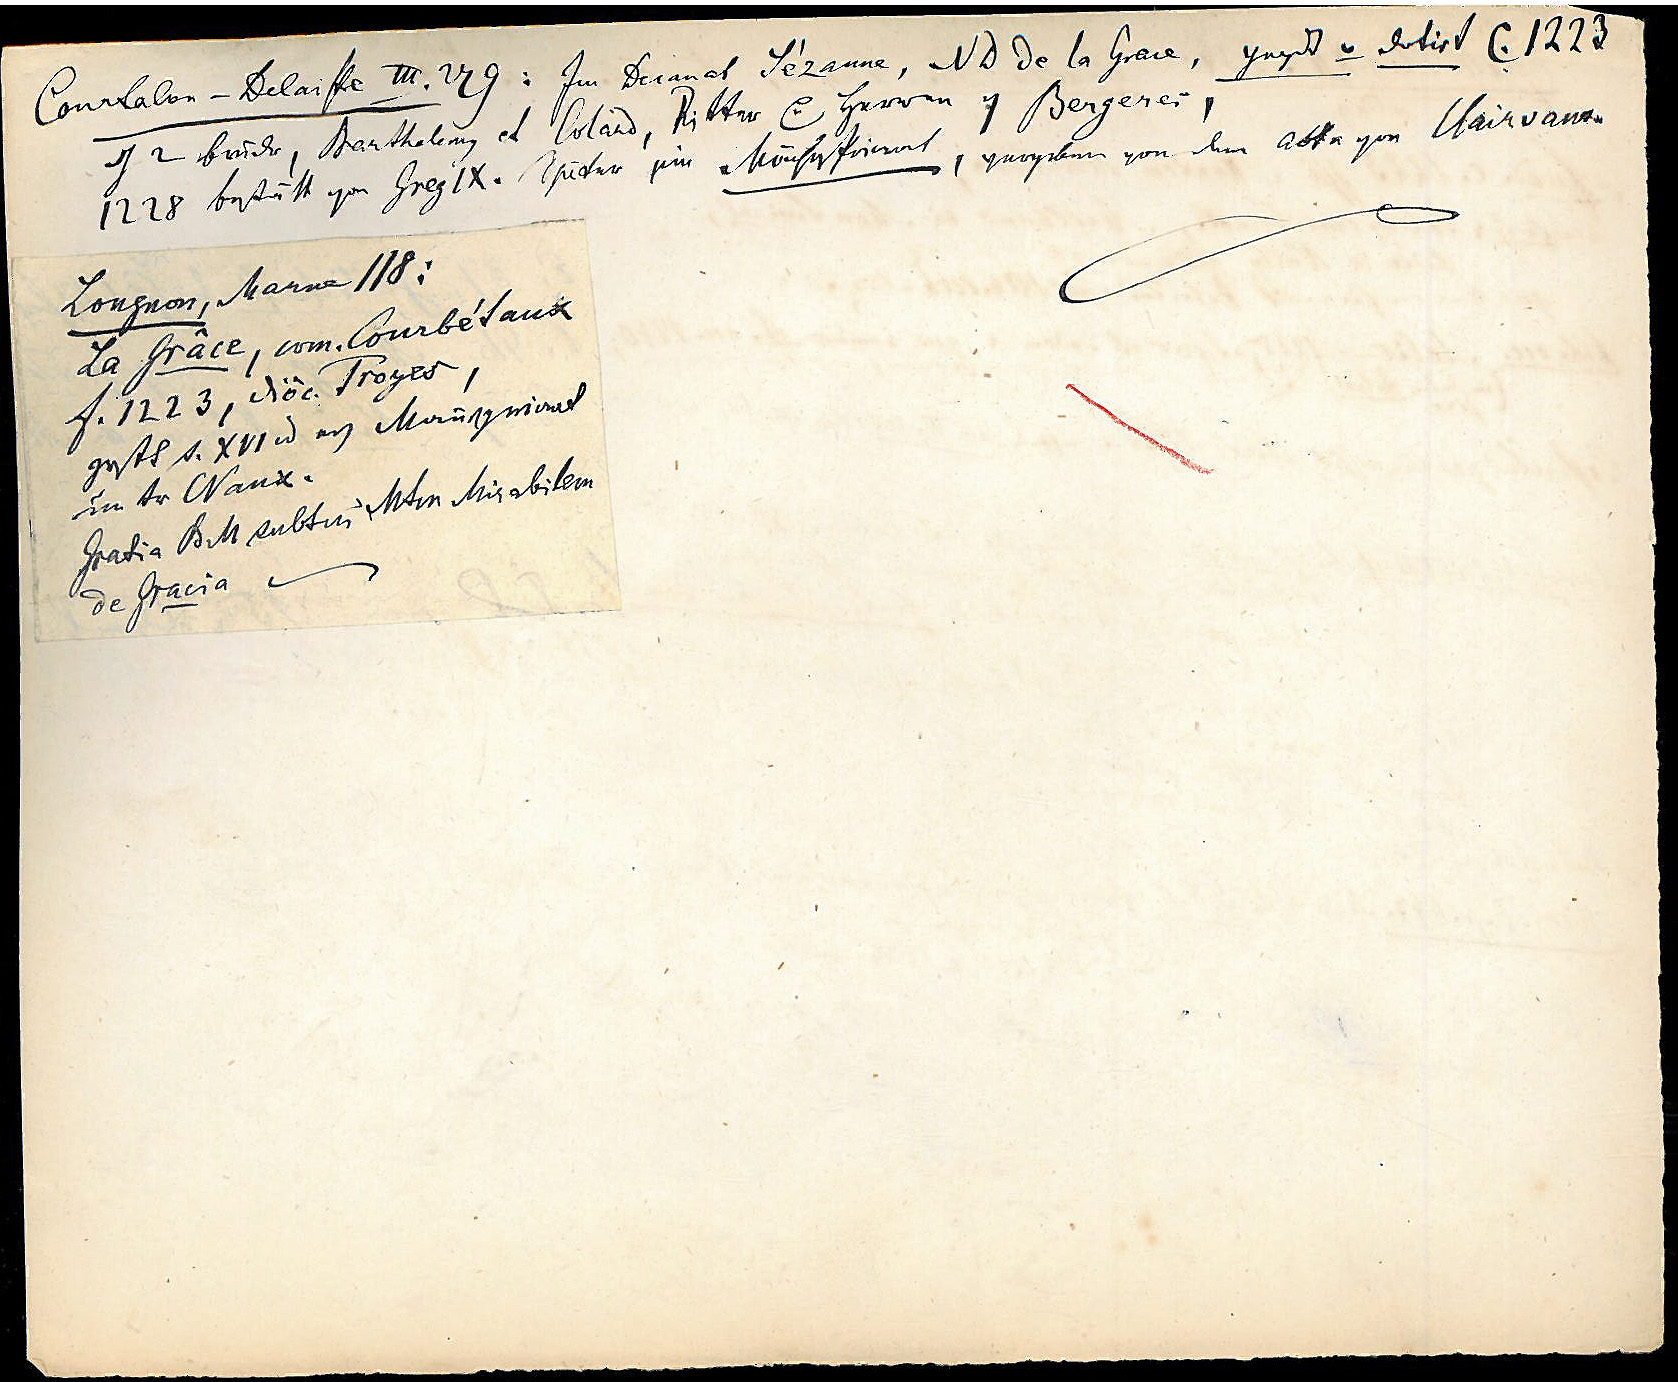 Courtalon-Delaistre III. 279: Im Decanat Sézanne, ND de la Grace, gegrdt u dotirt C. 1223
v 2 brüdr, Barthelemy et Colard, Ritter & Herren v Bergeres,
1228 bestätt von Greg IX. Später ein Mönchspriorat, vergeben von dem abte von Clairvaux.
Longnon, Marne 118:
La Grâce, com. Courbétaux
f. 1223, diöc. Troyes,
s. XVI Mannspriorat
Clvaux.
Gratia BM subtus Mtm Mirabilem
de Gracia